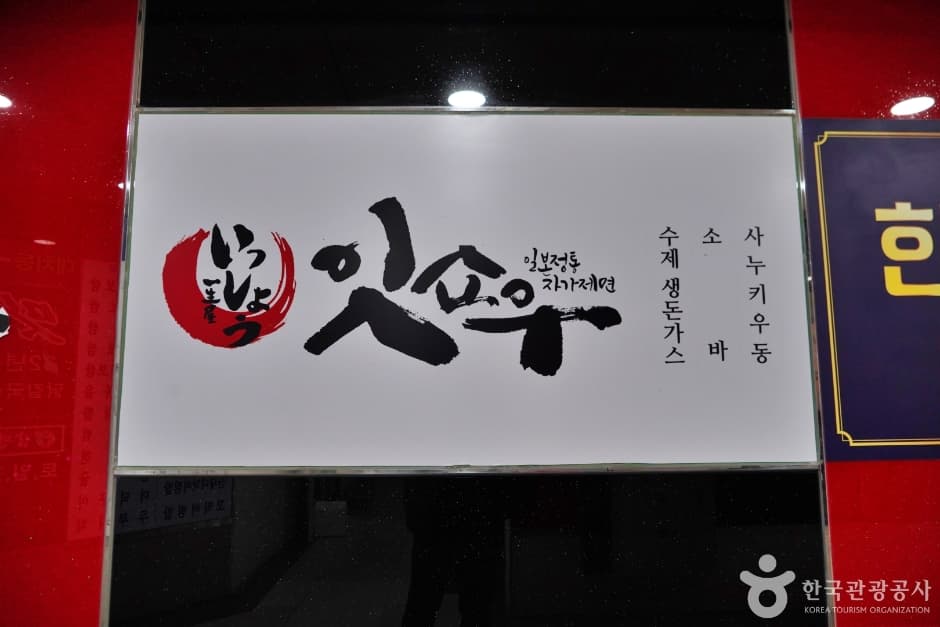 いっしょう
一生屋
잇쇼우
일본정통
자가제면
사누키우동
소바
수제생돈가스
한
한국관광공사
KOREA TOURISM ORGANIZATION